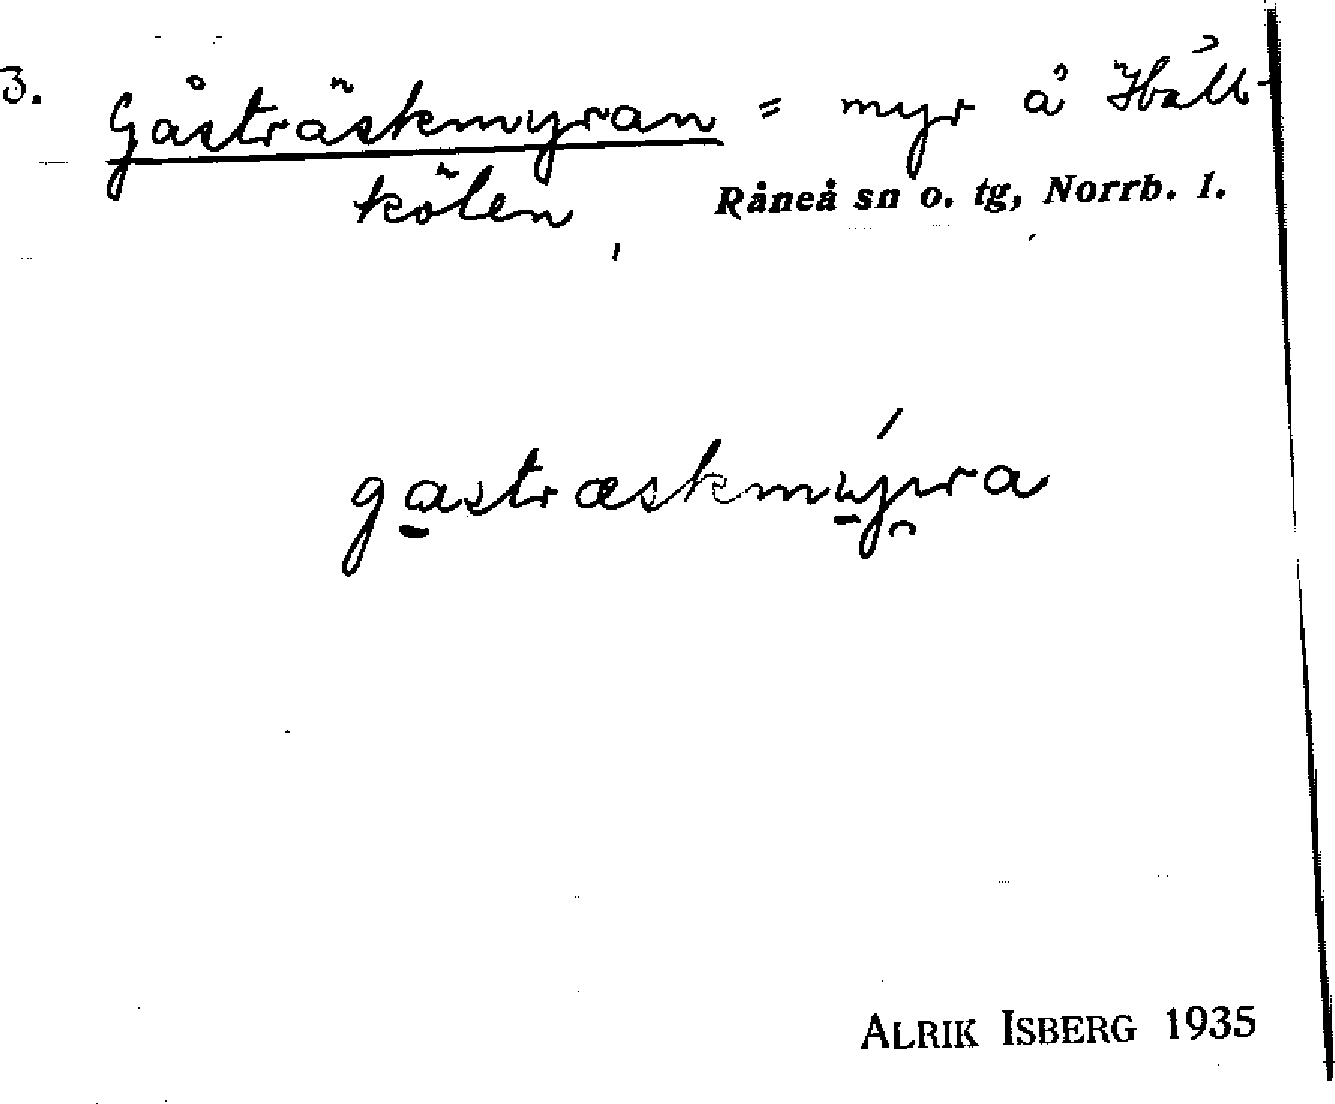 3. Gåsträskmyran = myr å Håll-
kölen
Råneå sn o. tg, Norrb. l.
gastræskmýra
ALRIK ISBERG 1935